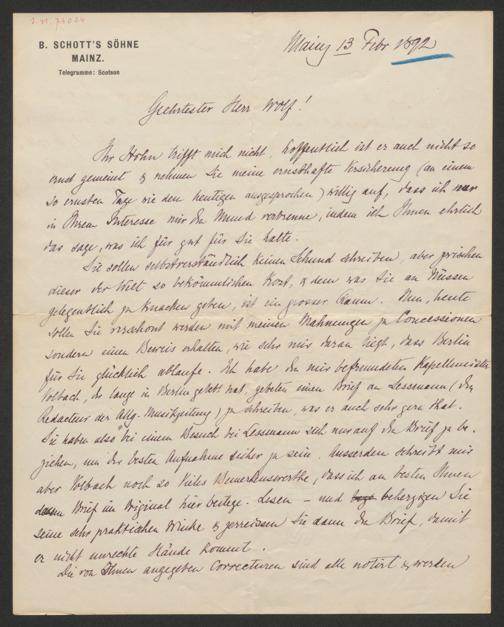 B. SCHOTT'S SÖHNE
MAINZ.
Telegramme: Scotson
Mainz 13 Febr 1892
Geehrtester Herr Wolf!
Ihr Hohn trifft mich nicht, hoffentlich ist er auch nicht so
ernst gemeint & nehmen Sie meine ernsthafte Versicherung (an einem
so ernsten Tage wie dem heutigen ausgesprochen) willig auf, dass ich nur
in Ihrem Interesse mir den Mund verbrenne, indem ich Ihnen ehrlich
das sage, was ich für gut für Sie halte.
Sie sollen selbstverständlich keinen Schund schreiben, aber zwischen
dieser der Welt so bekömmlichen Kost, & dem was Sie an Nüssen
gelegentlich zu knacken geben, ist ein grosser Raum. Nun, heute
sollen Sie verschont werden mit meinen Mahnungen zu Concessionen
sondern einen Beweis erhalten, wie sehr mir daran liegt, dass Berlin
für Sie glücklich ablaufe. Ich habe den mir befreundeten Kapellmeister
Volbach, der lange in Berlin gelebt hat, gebeten einen Brief an Lessmann (den
Redacteur der Allg. Musikzeitung) zu schreiben, was er auch sehr gern that.
Sie haben also bei einem Besuch bei Lessmann sich nur auf den Brief zu be-
ziehen, um der besten Aufnahme sicher zu sein. Ausserdem schreibt mir
aber Volbach noch so vieles Bemerkenswerthe, dass ich am besten Ihnen
Brief im Original hier beilege. Lesen – und beherzigen Sie
seine sehr praktischen Winke & zerreissen Sie dann den Brief, damit
er nicht unrechte Hände kommt.
Die von Ihnen angegeben Correcturen sind alle notirt & werden